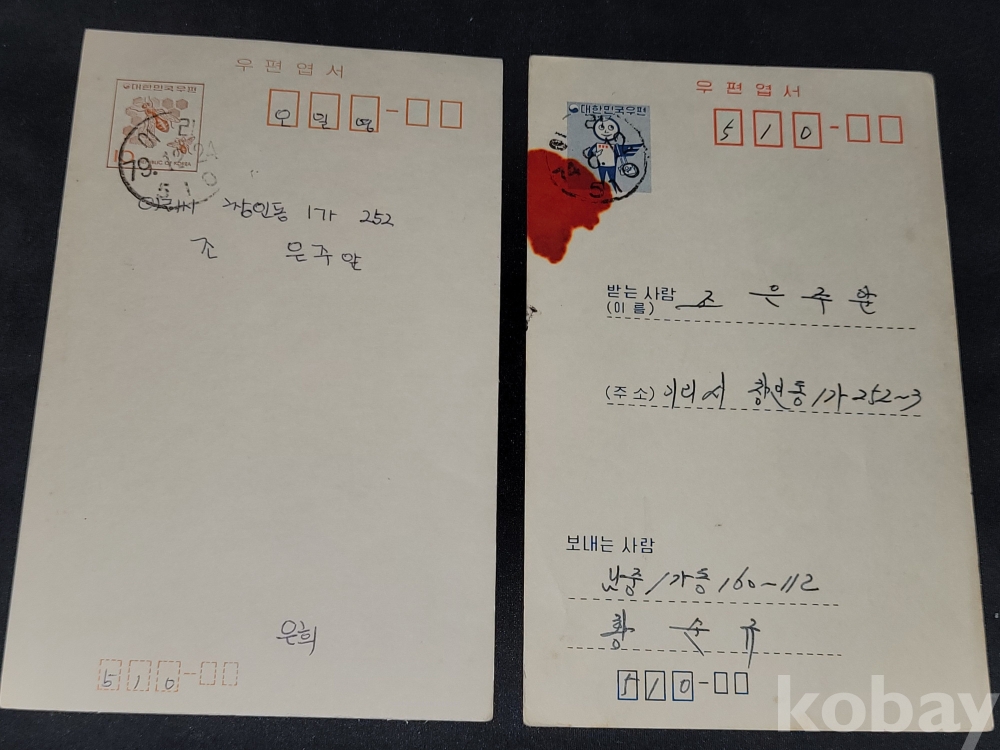 우편엽서
대한민국우편
오 일 영
79.
510
이리시 창인동 1가 252
조 은주 앞
은희
5 1 0
우편엽서
대한민국우편
5 1 0
받는 사람
(이 름)
조 은 주 앞
(주 소) 이리시 창인동 1가 252~3
보내는 사람
남중 1가동 160~112
황 순 규
5 1 0
kobay